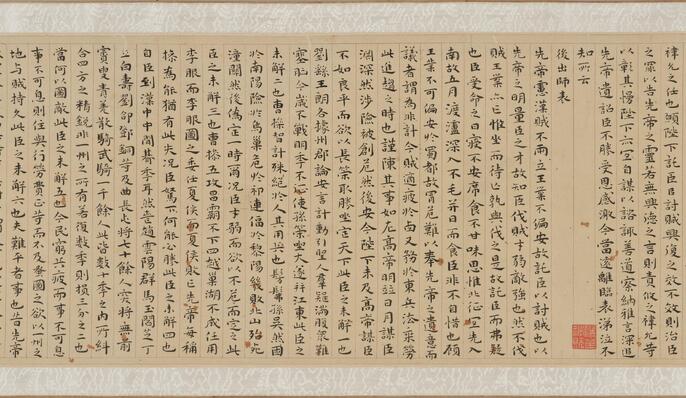 禕允之任也願陛下託臣以討賊興復之效不效則治臣
之罪以告先帝之靈若無興德之言則責攸之禕允等
以彰其慢陛下亦宜自謀以諮諏善道察納雅言深追
先帝遺詔臣不勝受恩感激今當遠離臨表涕泣不
知所云
後出師表
先帝慮漢賊不兩立王業不偏安故託臣以討賊也以
先帝之明量臣之才故知臣伐賊才弱敵強也然不伐
賊王業亦亡惟坐而待亡孰與伐之是故託臣而弗疑
也臣受命之日寢不安席食不甘味思惟北征宜先入
南故五月渡瀘深入不毛并日而食臣非不自惜也顧
王業不可偏安於蜀都故冒危難以奉先帝之遺意而
議者謂為非計今賊適疲於西又務於東兵法乘勞
此進趨之時也謹陳其事如左高帝明並日月謀臣
淵深然涉險被創危然後安今陛下未及高帝謀臣
不如良平而欲以長策取勝坐定天下此臣之未解一也
劉繇王朗各據州郡論安言計動引聖人羣疑滿腹衆難
塞胸今歲不戰明年不征使孫策坐大遂并江東此臣之
未解二也曹操智計殊絕於人其用兵也髣髴孫吳然困
於南陽險於烏巢危於祁連偪於黎陽幾敗北山殆死
潼關然後偽定一時爾況臣才弱而欲以不危而定之此
臣之未解三也曹操五攻昌霸不下四越巢湖不成任用
李服而李服圖之委任夏侯而夏侯敗亡先帝每稱
操為能猶有此失況臣駑下何能必勝此臣之未解四也
自臣到漢中中間朞年耳然喪趙雲陽群馬玉閻芝丁
立白壽劉郃鄧銅等及曲長屯將七十餘人突將無前
賨叟青羌散騎武騎一千餘人此皆數十年之內所糾
合四方之精銳非一州之所有若復數年則損三分之二也
當何以圖敵此臣之未解五也今民窮兵疲而事不可息
事不可息則住與行勞費正等而不及蚤圖之欲以一州之
地與賊持久此臣之未解六也夫難平者事也昔先帝